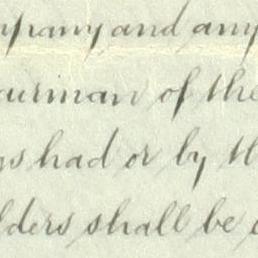 mpany and any
airman of the
gs had or by th
lders shall be